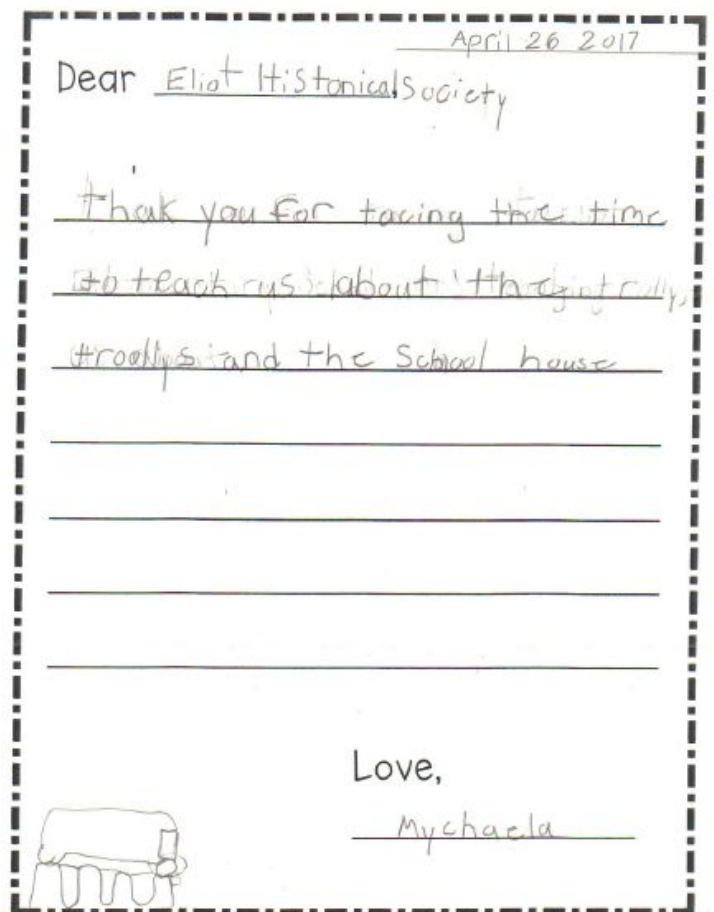 April 26 2017
Dear Eliot Historical Society
thak you for tacing the time
to teach us about
troollys and the School house
Love,
Mychaela